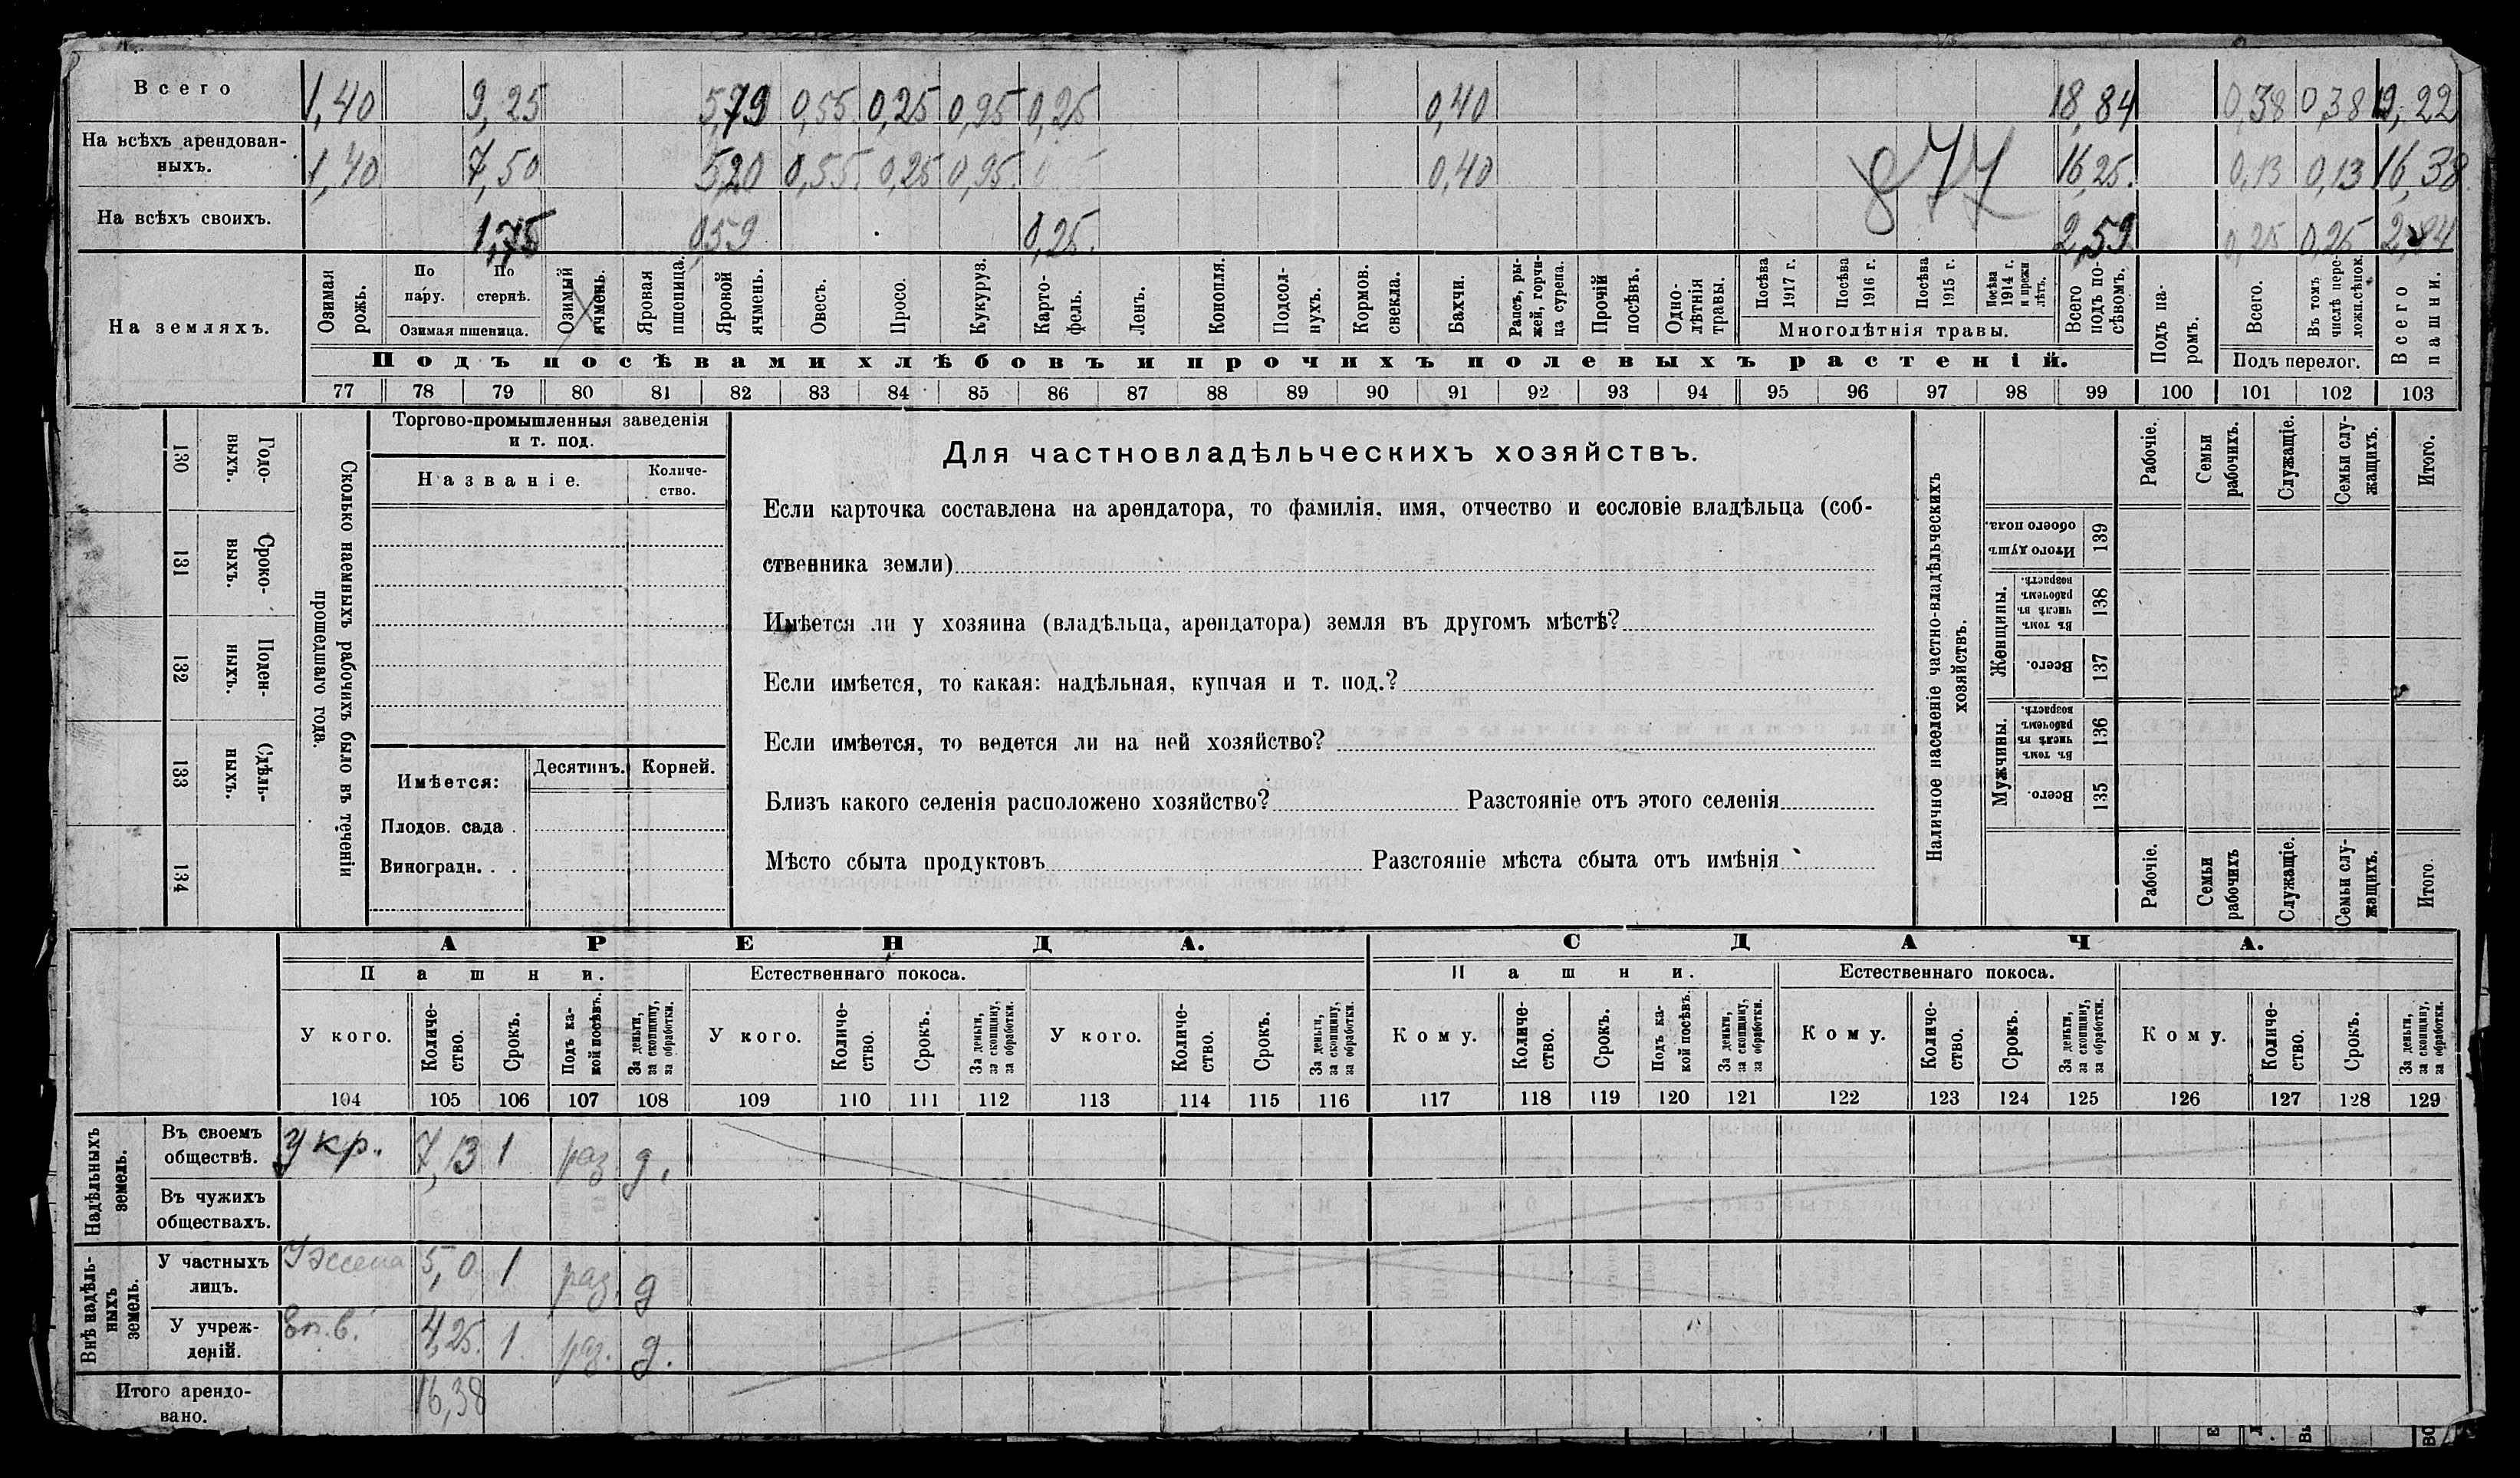 Всего 1,40 9,25 5,79 0,55 0,25 0,95 0,25 0,40 18,84 0,38 0,38 19,22
На всѣхъ арендован-
ныхъ. 1,40 7,50 5,20 0,55 0,25 0,95 0,40 16,25 0,13 0,13 16,38
877
На всѣхъ своихъ. 1,75 0,59 0,25 2,59 0,25 0,25 2,84
На земляхъ.
Озимая рожь.
По пару.
По стернѣ.
Озимая пшеница.
Озимый ячмень.
Яровая пшеница.
Яровой ячмень.
Овесъ.
Просо.
Кукуруз.
Карто-
фель.
Ленъ.
Конопля.
Подсол-
нухъ.
Кормов. свекла.
Бахчи.
Рапсъ, ры-
жей, горчи-
ца сурепа.
Прочій посѣвъ.
Одно-
лѣтнія травы.
Посѣва 1917 г.
Посѣва 1916 г.
Посѣва 1915 г.
Посѣва 1914 г. и прежн лѣтъ.
Многолѣтнія травы.
Всего подъ по-
сѣвомъ.
Подъ посѣвами хлѣбовъ и прочихъ полевыхъ растеній.
Подъ па-
ромъ.
Всего.
Въ томъ числѣ пере-
ложн.сѣнок.
Подъ перелог.
Всего пашни.
77 78 79 80 81 82 83 84 85 86 87 88 89 90 91 92 93 94 95 96 97 98 99 100 101 102 103
Сколько наемныхъ рабочихъ было въ теченіи
прошедшаго года.
130 Годо-
выхъ.
131 Сроко-
выхъ.
132 Поден-
ныхъ.
133 Сдѣль-
ныхъ.
134
Торгово-промышленныя заведенія
и т. под.
Названіе.
Количе-
ство.
Имѣется: Десятинъ. Корней.
Плодов. сада .
Виноградн. . .
Для частновладѣльческихъ хозяйствъ.
Если карточка составлена на арендатора, то фамилія, имя, отчество и сословіе владѣльца (соб-
ственника земли)
Имѣется ли у хозяина (владѣльца, арендатора) земля въ другомъ мѣстѣ?
Если имѣется, то какая: надѣльная, купчая и т. под.?
Если имѣется, то ведется ли на ней хозяйство?
Близъ какого селенія расположено хозяйство? Разстояніе отъ этого селенія
Мѣсто сбыта продуктовъ Разстояніе мѣста сбыта отъ имѣнія
Наличное населеніе частно-владѣльческихъ
хозяйствъ.
Рабочіе.
Семьи рабочихъ.
Служащіе.
Семьи слу-
жащихъ.
Итого.
Итого душъ обоего пола. 139
Женщины.
Въ томъ числѣ въ рабочемъ возрастѣ. 138
Всего. 137
Мужчины.
Въ томъ числѣ въ рабочемъ возрастѣ. 136
Всего. 135
Рабочіе.
Семьи рабочихъ
Служащіе.
Семьи слу-
жащихъ.
Итого
АРЕНДА. СДАЧА.
Пашни. Естественнаго покоса. Пашни. Естественнаго покоса.
У кого.
Количе-
ство.
Срокъ.
Подъ ка-
кой посѣвъ.
За деньги, за скопщину, за обработки.
У кого.
Количе-
ство.
Срокъ.
За деньги, за скопщину, за обработки.
У кого.
Количе-
ство.
Срокъ.
За деньги, за скопщину, за обработки.
Кому.
Количе-
ство.
Срокъ.
Подъ ка-
кой посѣвъ.
За деньги, за скопщину, за обработки.
Кому.
Количе-
ство.
Срокъ.
За деньги, за скопщину, за обработки.
Кому.
Количе-
ство.
Срокъ.
За деньги, за скопщину, за обработки.
104 105 106 107 108 109 110 111 112 113 114 115 116 117 118 119 120 121 122 123 124 125 126 127 128 129
Надѣльныхъ земель.
Въ своемъ
обществѣ. у кр. 7,13 1 раз д.
Въ чужихъ
обществахъ.
Внѣ надѣль-
ныхъ земель.
У частныхъ
лицъ. 5,0 1 раз. д
У учреж-
деній. 4,25. 1 раз. д.
Итого арендо-
вано. 16,38